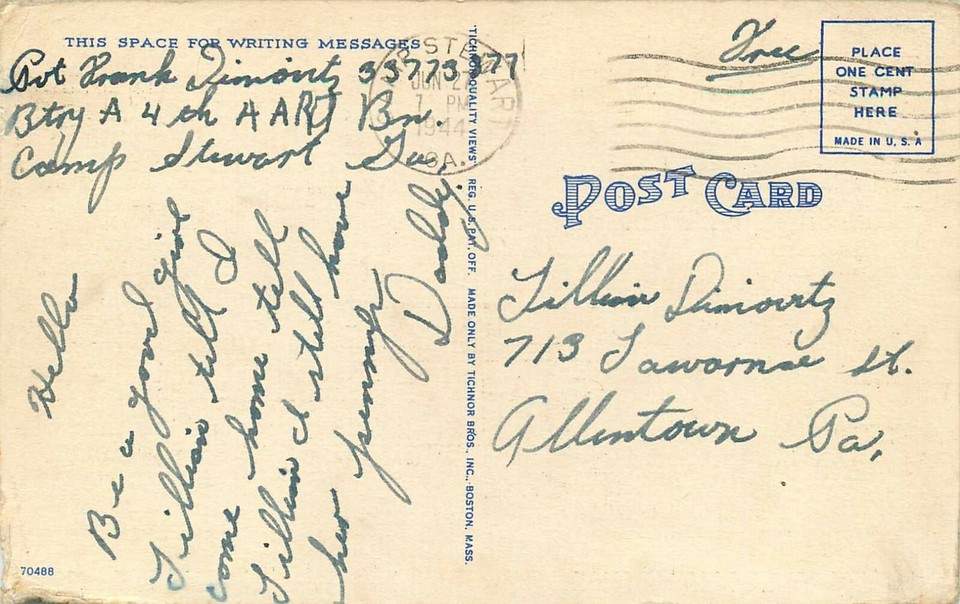 THIS SPACE FOR WRITING MESSAGES
Pvt Frank Dimovitz 33773377
Btry A 4th AARJ Bn.
Camp Stewart Ga.
Hello
Be a good girl
Lillian till I
come home tell
Lillian I still have
her
Daddy
JUN 27
7 PM
1944
GA.
TICHNOR QUALITY VIEWS REG. U.S. PAT. OFF. MADE ONLY BY TICHNOR BROS., INC., BOSTON, MASS.
Free
PLACE
ONE CENT
STAMP
HERE
MADE IN U.S.A
POST CARD
Lillian Dimovitz
713 Lawornse St.
Allentown Pa,
70488